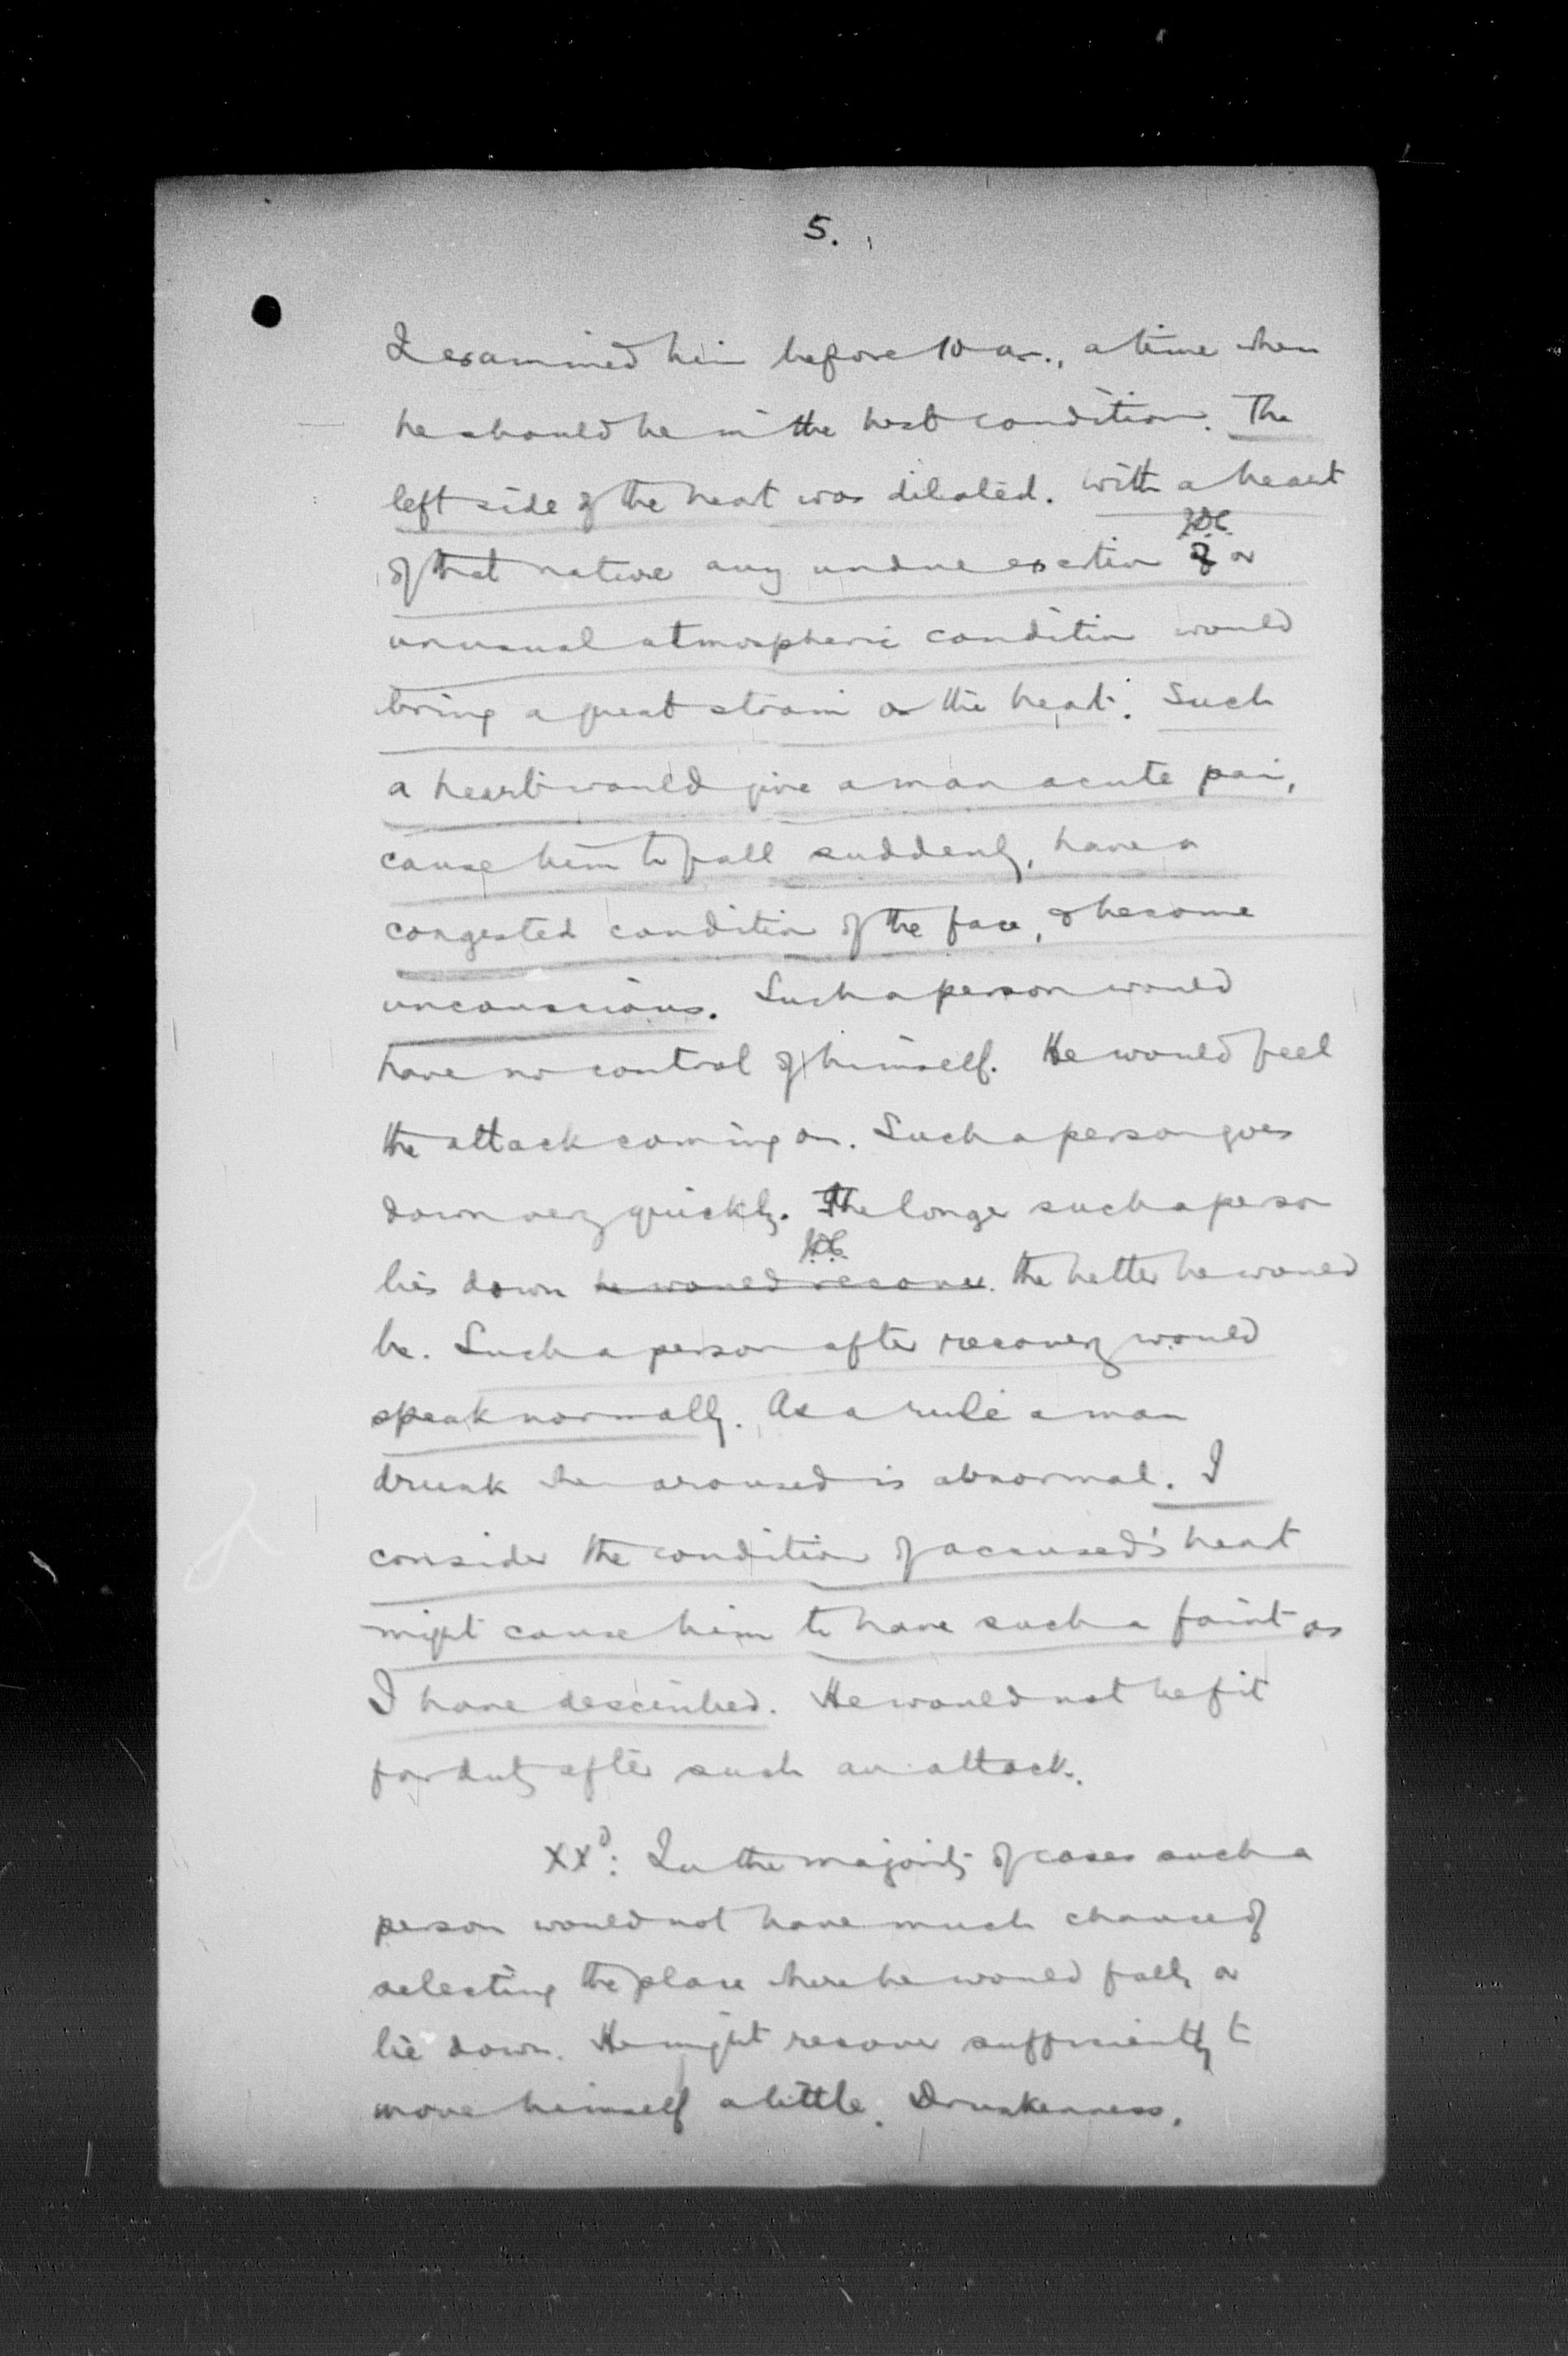 5.
I examined him before 10 am., a time when
he should be in the best condition. The
left side of the heart was dilated. With a heart
of that nature any undue exertion of or
unusual atmospheric condition would
bring a great strain on the heart. Such
a heart would give a man acute pain,
cause him to fall suddenly, have a
congested condition of the face, & become
unconscious. Such a person would
have no control of himself. He would feel
the attack coming on. Such a person goes
down very quickly. The longer such a person
lies down he would recover the better he would
be. Such a person after recovery would
speak normally. As a rule a man
drunk when aroused is abnormal. I
consider the condition of accused's heart
might cause him to have such a faint as
I have described. He would not be fit
for duty after such an attack.
XXd: In the majority of cases such a
person would not have much chance of
selecting the place where he would fall, or
lie down. He might recover sufficiently to
move himself a little. Drunkenness,